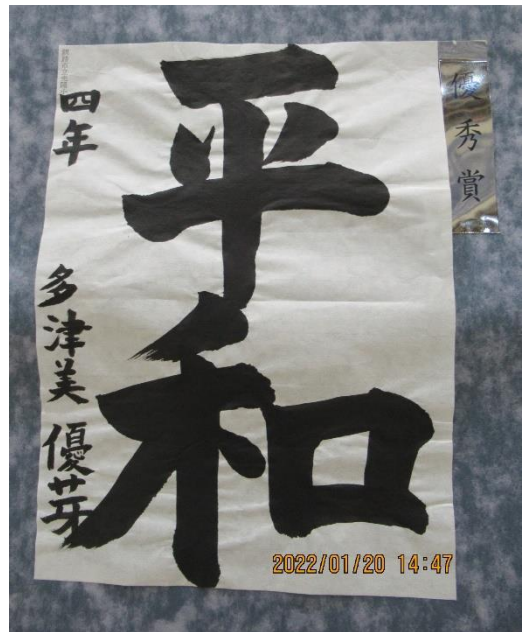 優秀賞
平和
四年 多津美 優芽
2022/01/20 14:47